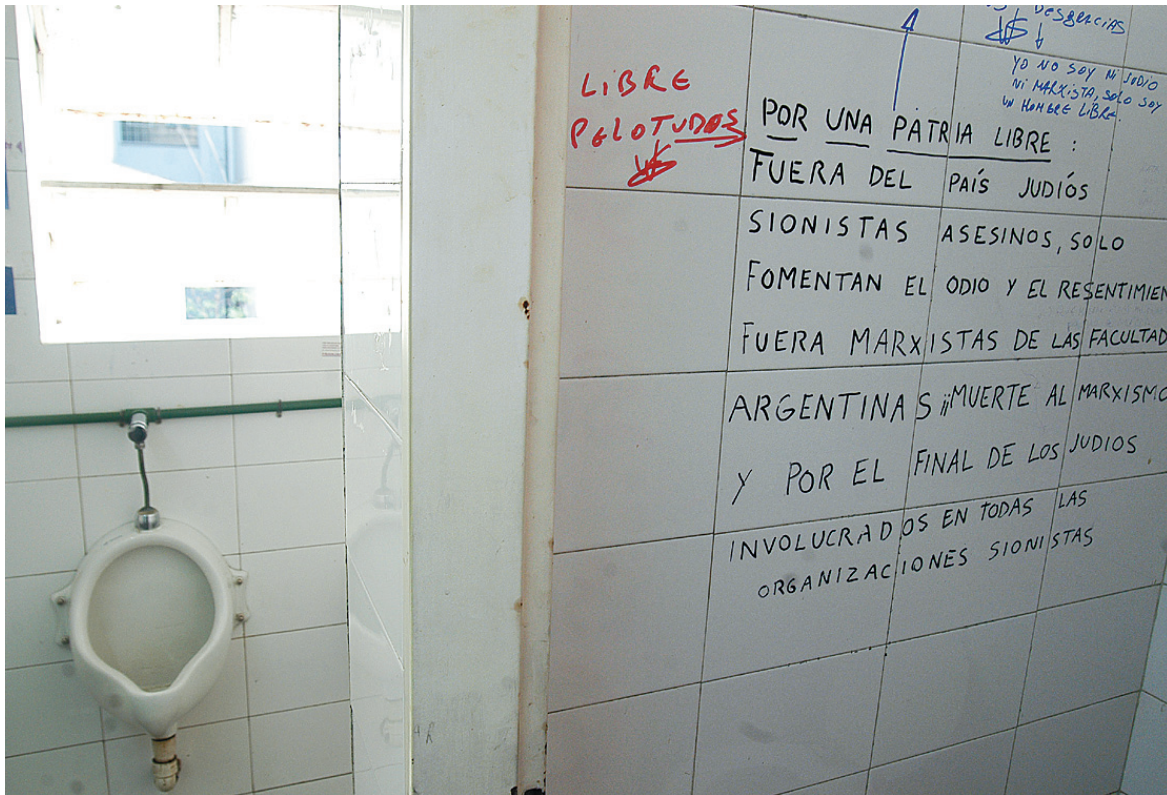 DESGRACIAS
YO NO SOY NI JUDIO
NI MARXISTA, SOLO SOY
UN HOMBRE LIBRE.
LIBRE
PELOTUDOS
POR UNA PATRIA LIBRE :
FUERA DEL PAÍS JUDIÓS
SIONISTAS ASESINOS, SOLO
FOMENTAN EL ODIO Y EL RESENTIMIEN
FUERA MARXISTAS DE LAS FACULTAD
ARGENTINAS ¡¡MUERTE AL MARXISMO
Y POR EL FINAL DE LOS JUDIOS
INVOLUCRADOS EN TODAS LAS
ORGANIZACIONES SIONISTAS